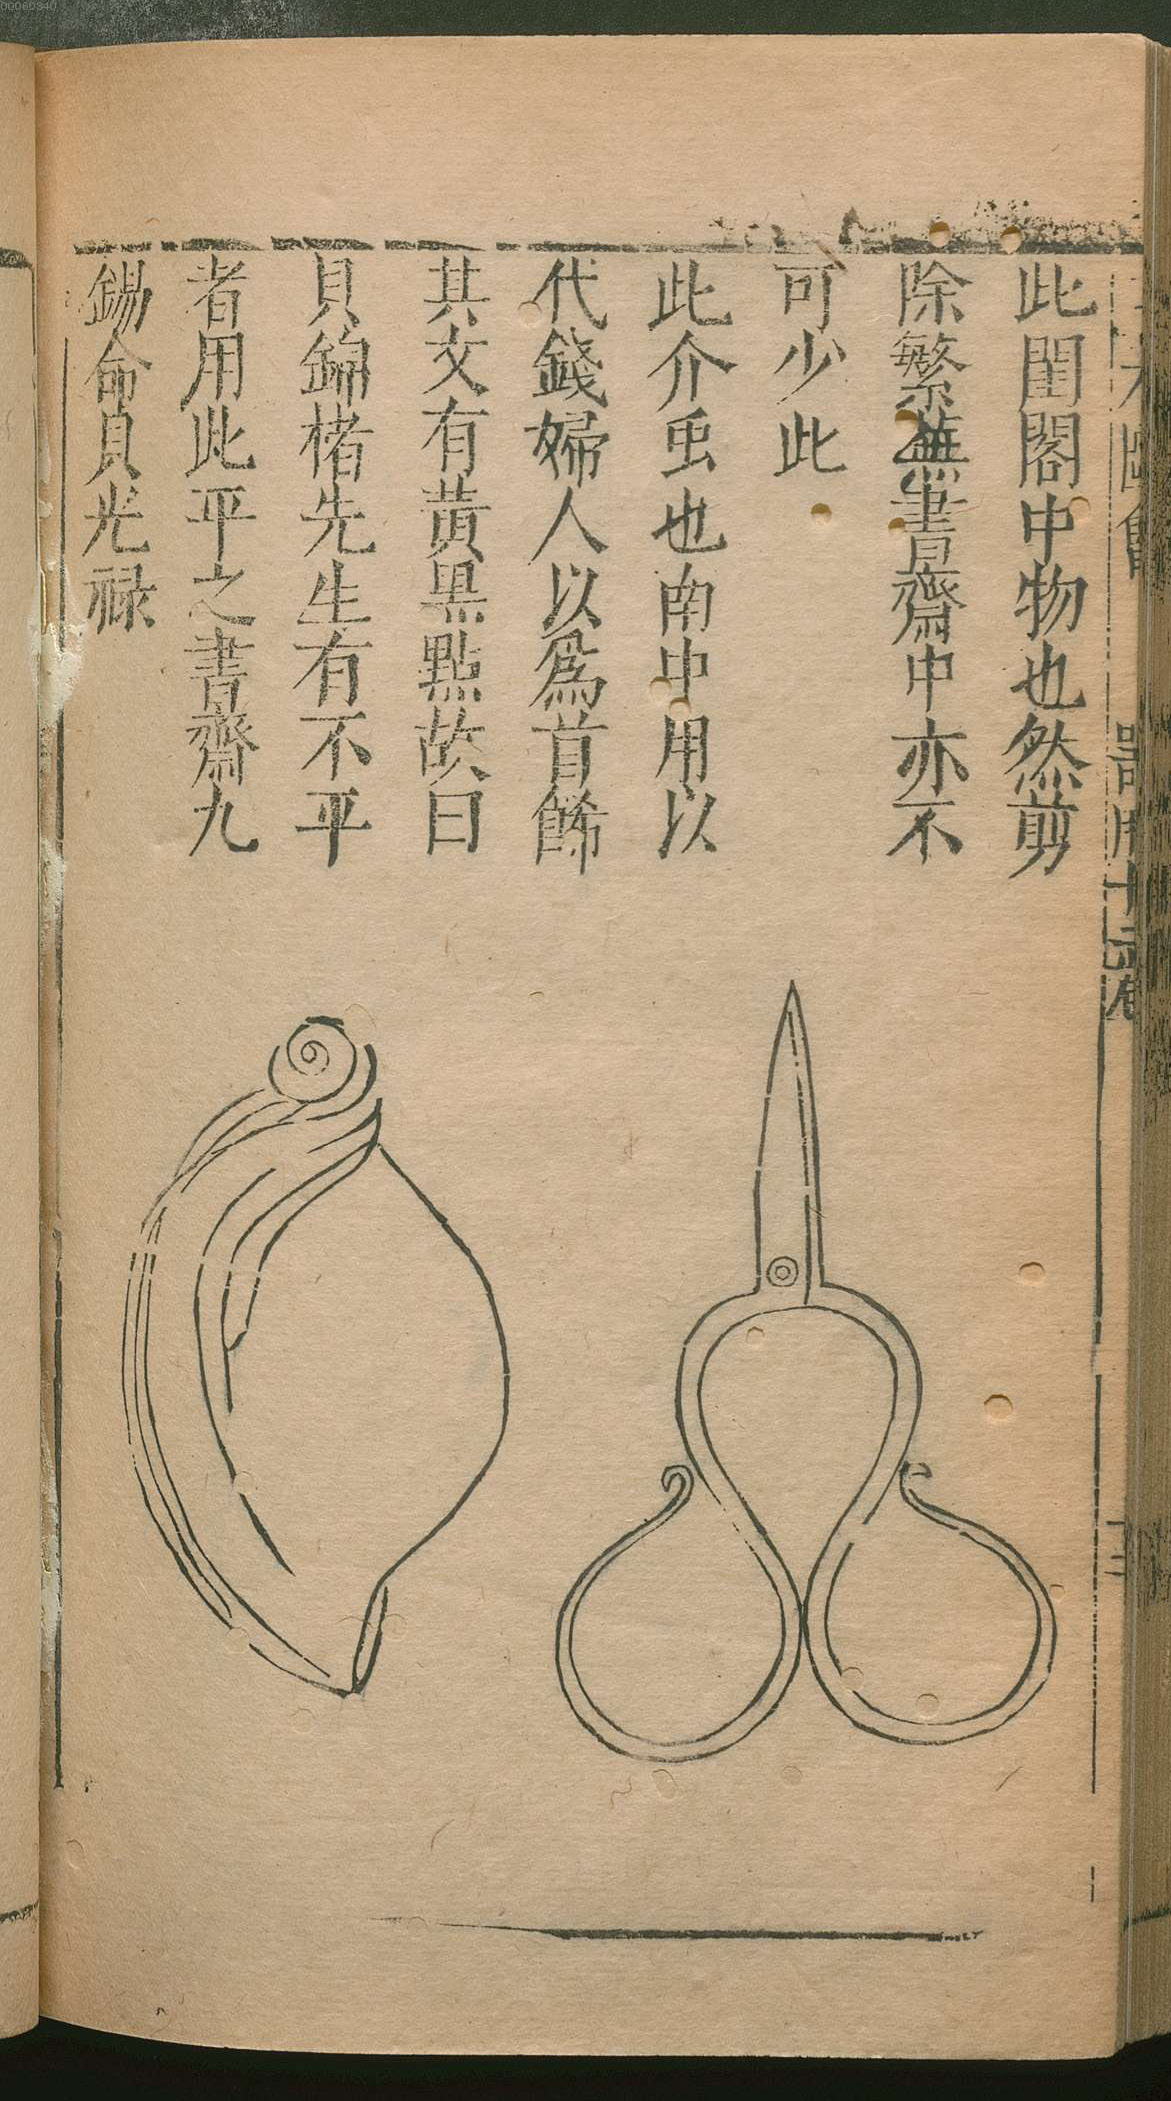 此閨閣中物也然剪
除繁蕪書齋中亦不
可少此
此介虫也南中用以
代錢婦人以爲首餙
其文有黃黑點故曰
貝錦楮先生有不平
者用此平之書齋九
錫命貝光禄
00060340